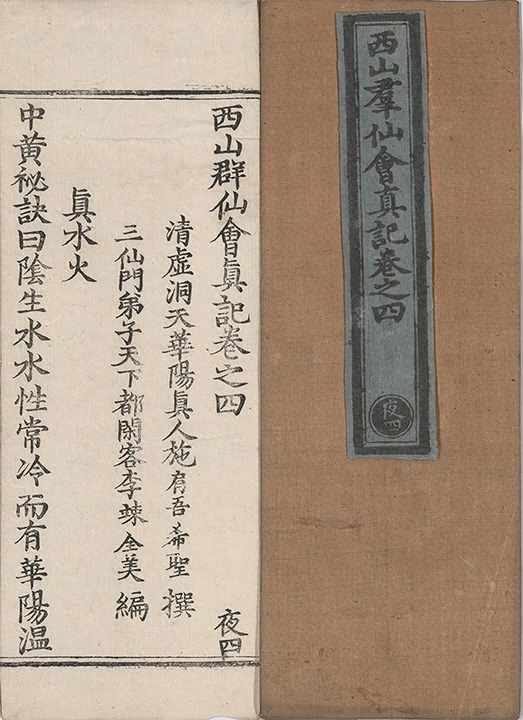 西山羣仙會真記卷之四
夜四
西山群仙會眞記卷之四
夜四
清虛洞天華陽眞人施肩吾希聖撰
三仙門弟子天下都閑客李竦全美編
眞水火
中黃祕訣曰陰生水水性常冷而有華陽温